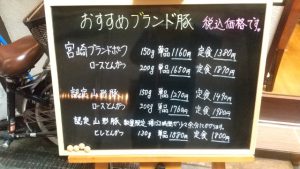 おすすめブランド豚 税込価格です。
宮崎ブランドポーク 150g 単品1160円 定食1380円
ロースとんかつ 200g 単品1650円 定食1870円
認定山形豚 150g 単品1270円 定食1490円
ロースとんかつ 200g 単品1760円 定食1980円
認定山形豚 数量限定
ヒレとんかつ 130g 単品1580円 定食1800円